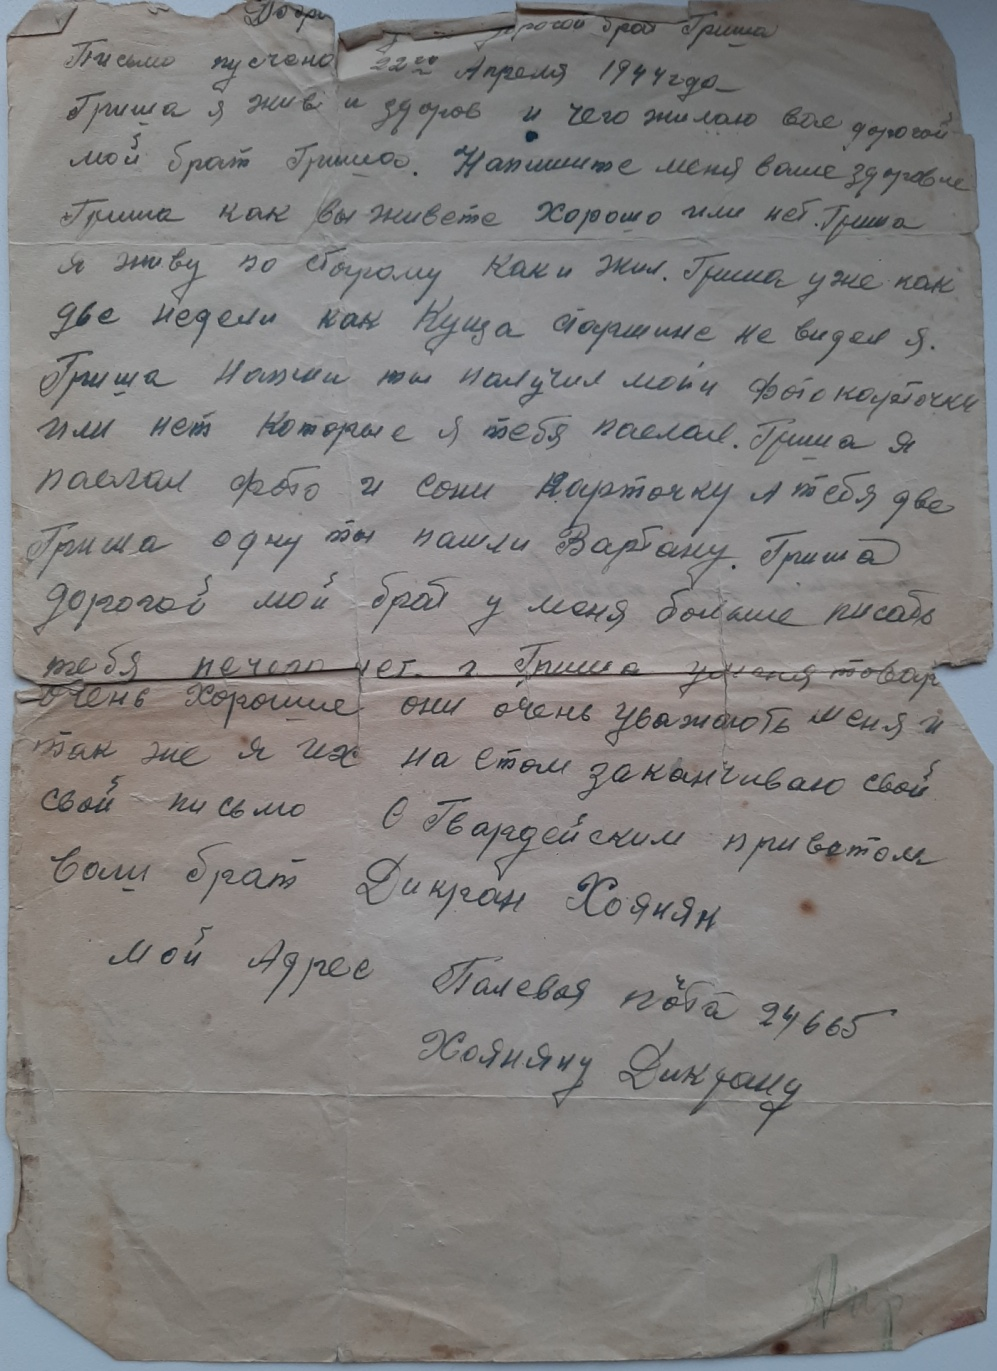 Добр дорогой брат Гриша
Письмо пусчено 22го Апреля 1944 года
Гриша я жив и здоров и чего жилаю вае дорогой
мой брат Гриша. Напишите меня ваше здоровле
Гриша как вы живете хорошо или нет. Гриша
я живу по старому как и жил. Гриша уже как
две недели как Куща старшине не видел я.
Гриша напиши ты получил мой и фотокарточки
или нет которые я тебя паслал. Гриша я
паслал фото и сони карточку и тебя две
Гриша одну ты пашли Вартану. Гриша
дорогой мой брат у меня больше писать
тебя нечего нет. и Гриша у меня товар
очень хорошие они очень уважають меня и
так же я их на етом заканчиваю свой
свой письмо С Гвардейским приветом
Ваш брат Дикран Хоянян
Мой Адрес Палевая почта 24665
Хояняну Дикрану